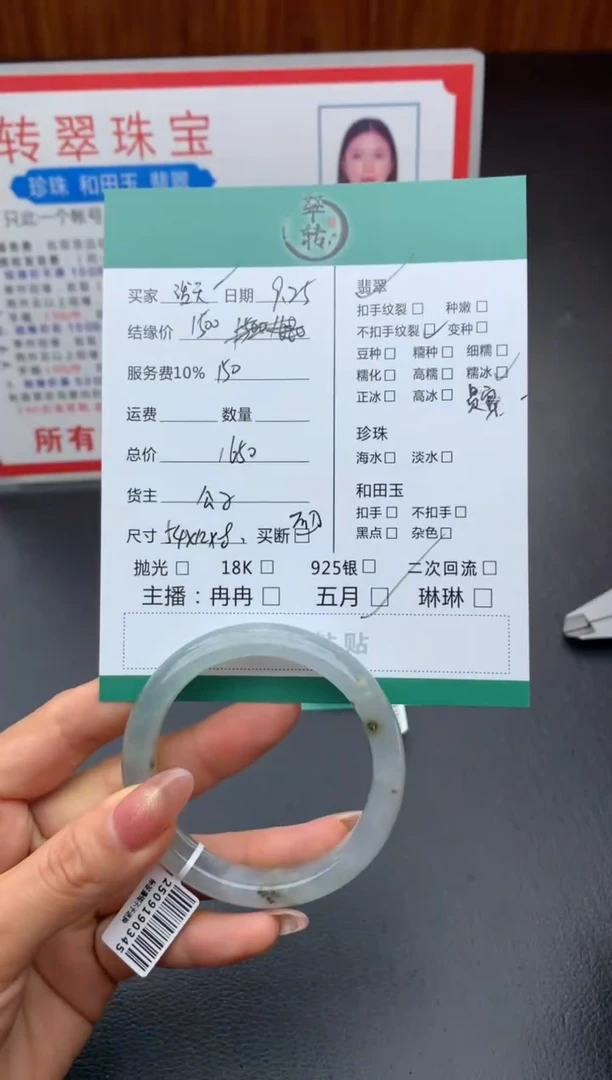 转翠珠宝
珍珠 和田玉 翡翠
只此一个帐号
所有
翠转
买家 日期 9.25
结缘价 1500
服务费10% 150
运费 数量
总价 1650
货主 公子
尺寸 54x12x8 买断
翡翠
扣手纹裂 种嫩
不扣手纹裂 变种
豆种 糯种 细糯
糯化 高糯 糯冰
正冰 高冰
珍珠
海水 淡水
和田玉
扣手 不扣手
黑点 杂色
抛光 18K 925银 二次回流
主播：冉冉 五月 琳琳
粘贴
2509190345